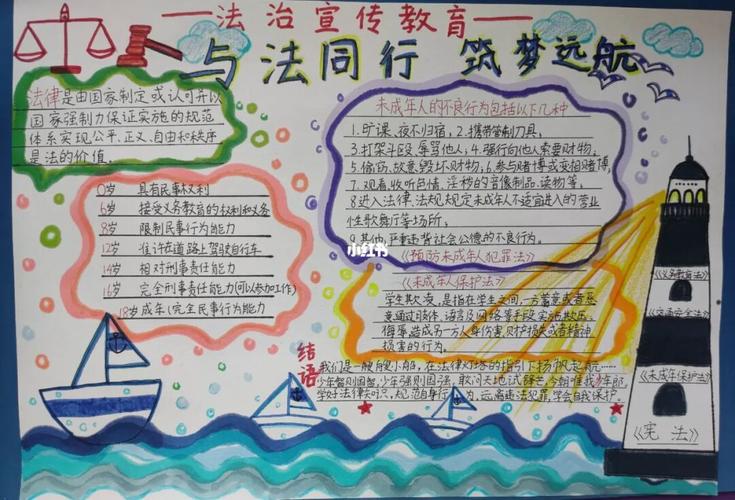 法治宣传教育
与法同行 筑梦远航
法律是由国家制定或认可并以
国家强制力保证实施的规范
体系实现公平、正义、自由和秩序
是法的价值.
0岁 具有民事权利
6岁 接受义务教育的权利和义务
8岁 限制民事行为能力
12岁 准许在道路上驾驶自行车
14岁 相对刑事责任能力
16岁 完全刑事责任能力(可以参加工作)
18岁 成年(完全民事行为能力
未成年人的不良行为包括以下几种
1.旷课、夜不归宿;2.携带管制刀具,
3.打架斗殴、辱骂他人;4.强行向他人索要财物,
5.偷窃、故意毁坏财物;6.参与赌博或变相赌博,
7.观看、收听色情、淫秽的音像制品、读物等;
8进入法律、法规规定未成年人不适宜进入的营业
性歌舞厅等场所;
9其他严重违背社会公德的不良行为。
《预防未成年人犯罪法》
《未成年人保护法》
学生欺凌,是指在学生之间,一方蓄意或者恶
意通过肢体、语言及网络等手段实施欺压、
侮辱,造成另一方人身伤害,财产损失或者精神
损害的行为。
小红书
结语
我们是一艘白色小船,在法律灯塔的指引下扬帆起航……
少年智则国智,少年强则国强,敢问天地试锋芒,今朝唯我少年郎,
学好法律知识,规范自身行为,远离违法犯罪,学会自我保护。
《义务教育法》
《交通安全法》
《未成年保护法》
《宪法》